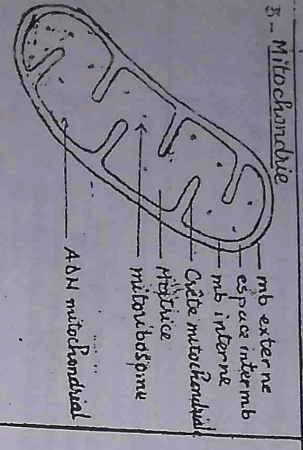 3- Mitochondrie
mb externe
espace intermb
mb interne
Crête mitochondriale
Matrice
mitoribosome
ADN mitochondrial